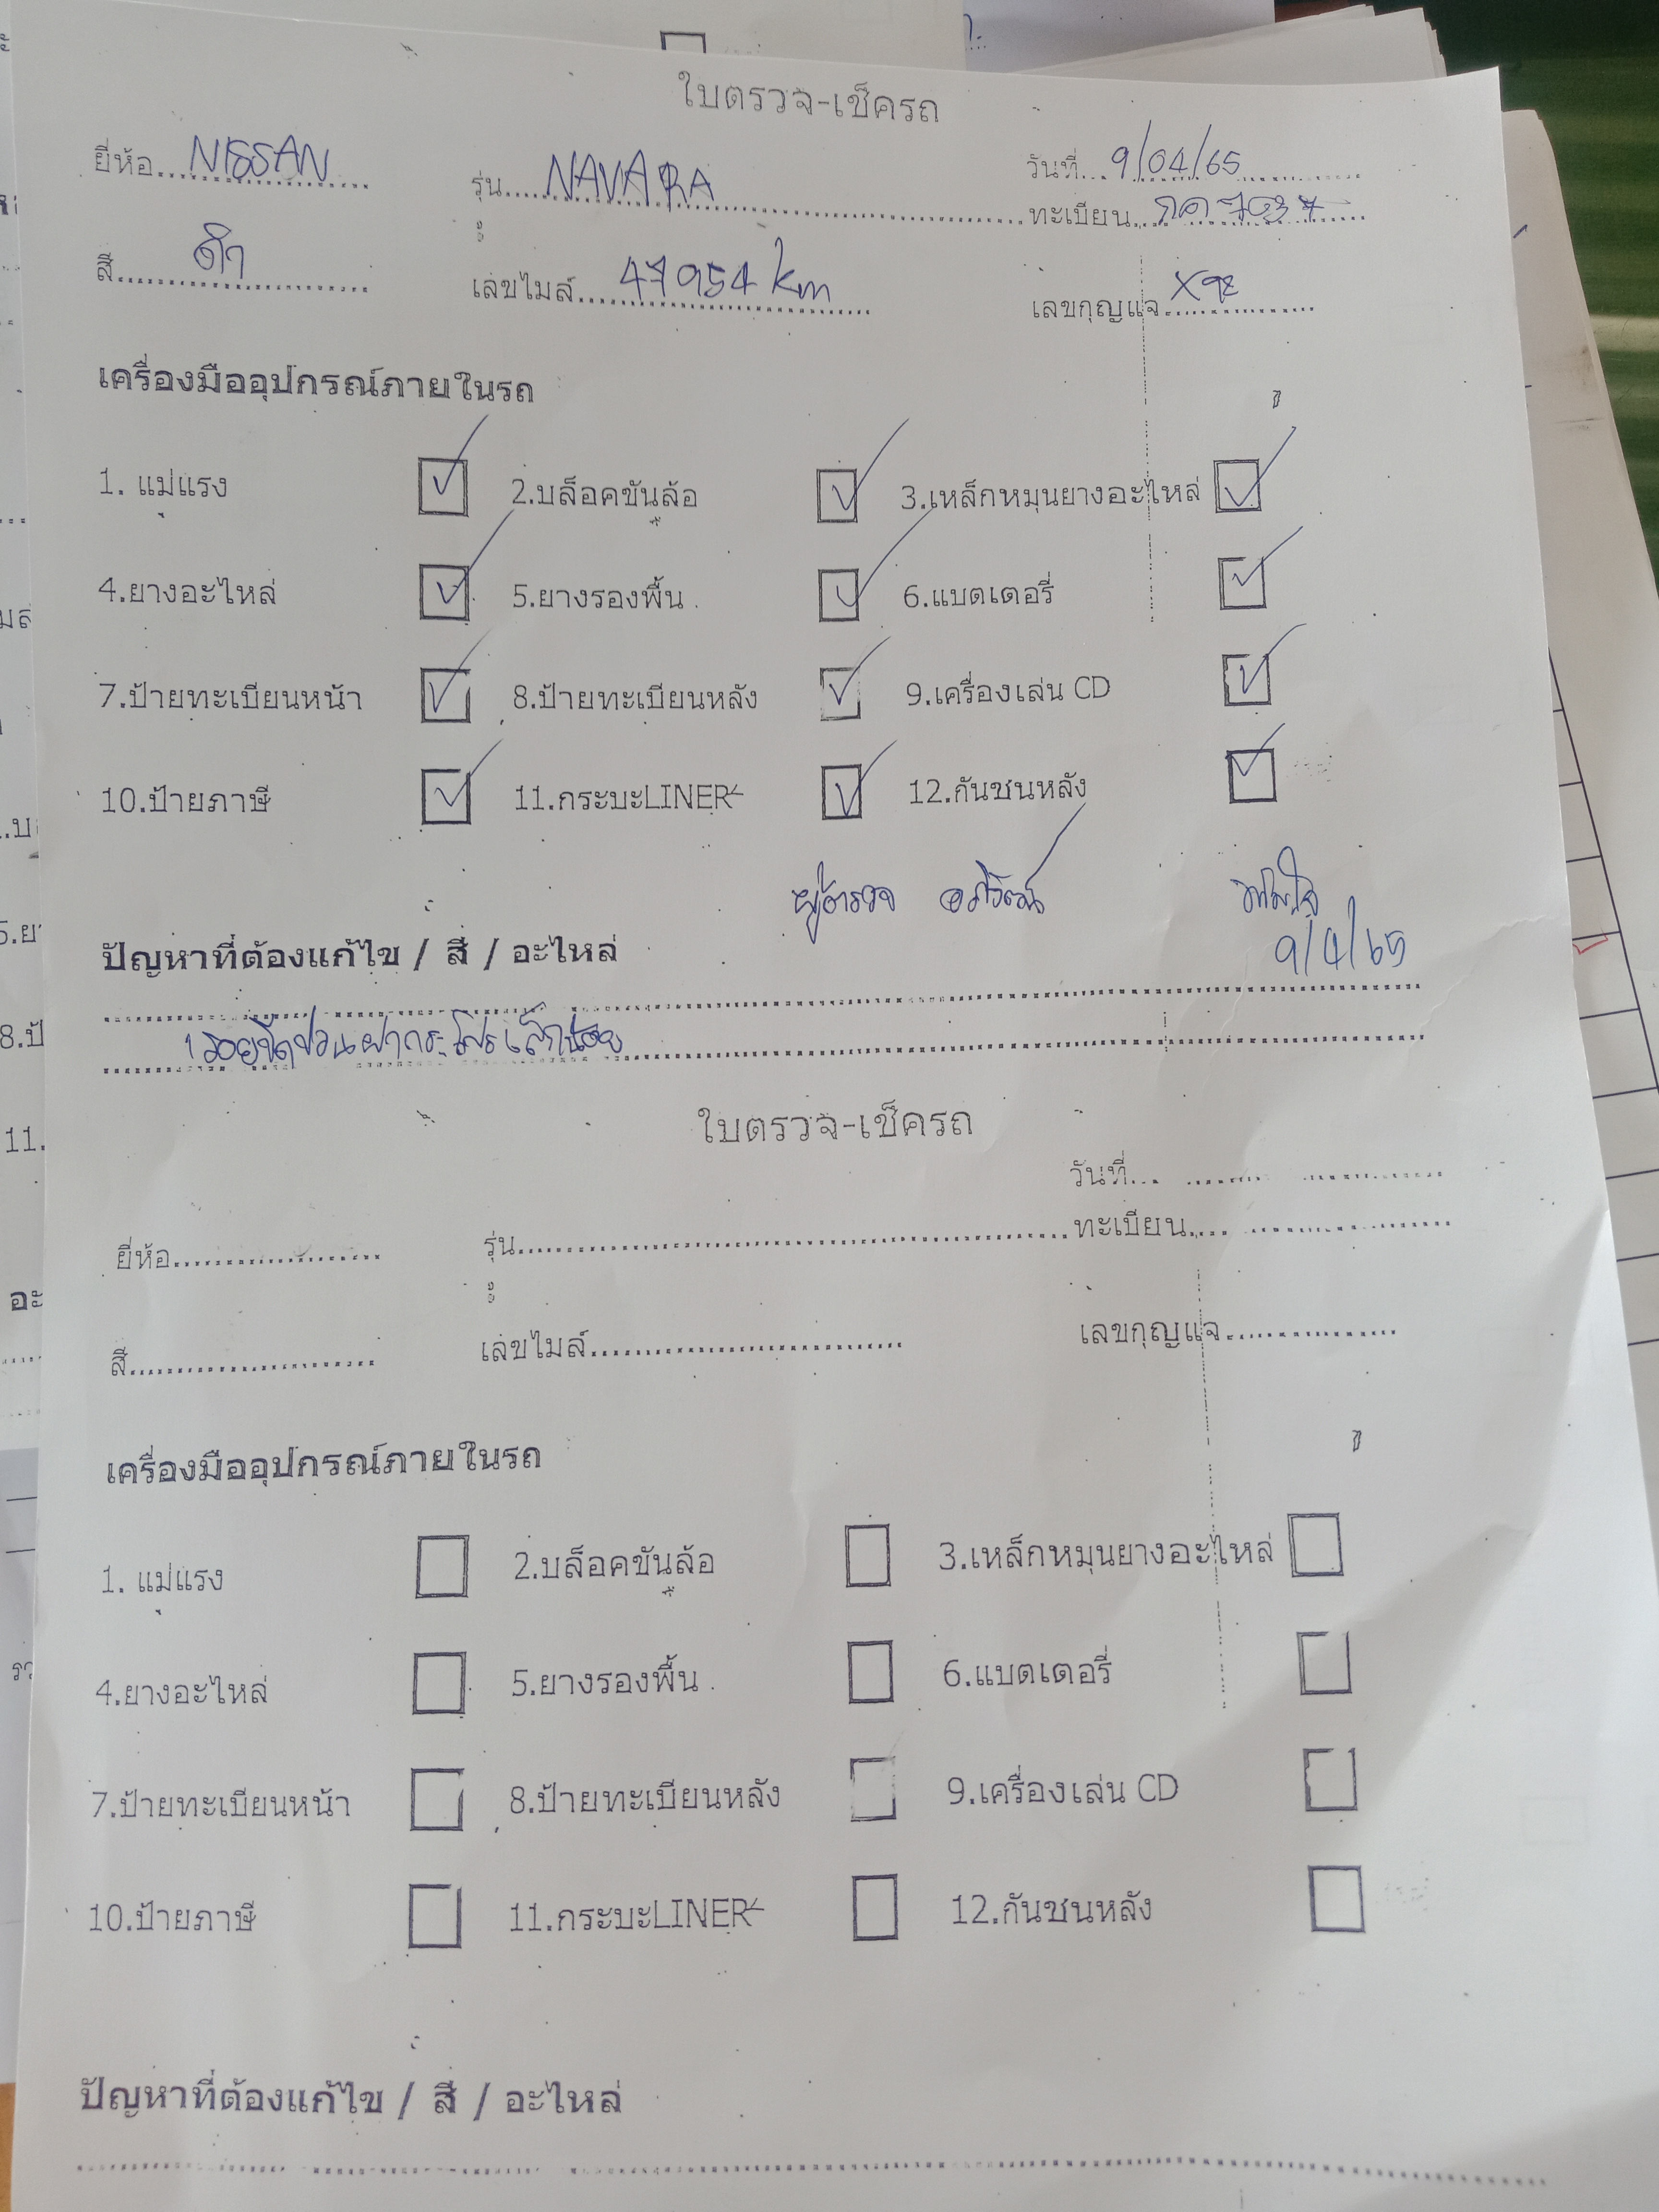 ใบตรวจ-เช็ครถ
ยี่ห้อ....NISSAN.... รุ่น....NAVARA.... วันที่...9/04/65
ทะเบียน....กค 7037
สี....ดำ.... เลขไมล์....47954 km.... เลขกุญแจ....
เครื่องมืออุปกรณ์ภายในรถ
1. แม่แรง ✓ 2.บล็อคขันล้อ ✓ 3.เหล็กหมุนยางอะไหล่ ✓
4.ยางอะไหล่ ✓ 5.ยางรองพื้น ✓ 6.แบตเตอรี่ ✓
7.ป้ายทะเบียนหน้า ✓ 8.ป้ายทะเบียนหลัง ✓ 9.เครื่องเล่น CD ✓
10.ป้ายภาษี ✓ 11.กระบะLINER ✓ 12.กันชนหลัง ✓
ผู้ตรวจ อภิวัฒน์
ปัญหาที่ต้องแก้ไข / สี / อะไหล่ 9/4/65
1 รอยขีดข่วนฝากระโปรงเล็กน้อย
ใบตรวจ-เช็ครถ
วันที่....
ยี่ห้อ.... รุ่น.... ทะเบียน....
สี.... เลขไมล์.... เลขกุญแจ....
เครื่องมืออุปกรณ์ภายในรถ
1. แม่แรง 2.บล็อคขันล้อ 3.เหล็กหมุนยางอะไหล่
4.ยางอะไหล่ 5.ยางรองพื้น 6.แบตเตอรี่
7.ป้ายทะเบียนหน้า 8.ป้ายทะเบียนหลัง 9.เครื่องเล่น CD
10.ป้ายภาษี 11.กระบะLINER 12.กันชนหลัง
ปัญหาที่ต้องแก้ไข / สี / อะไหล่